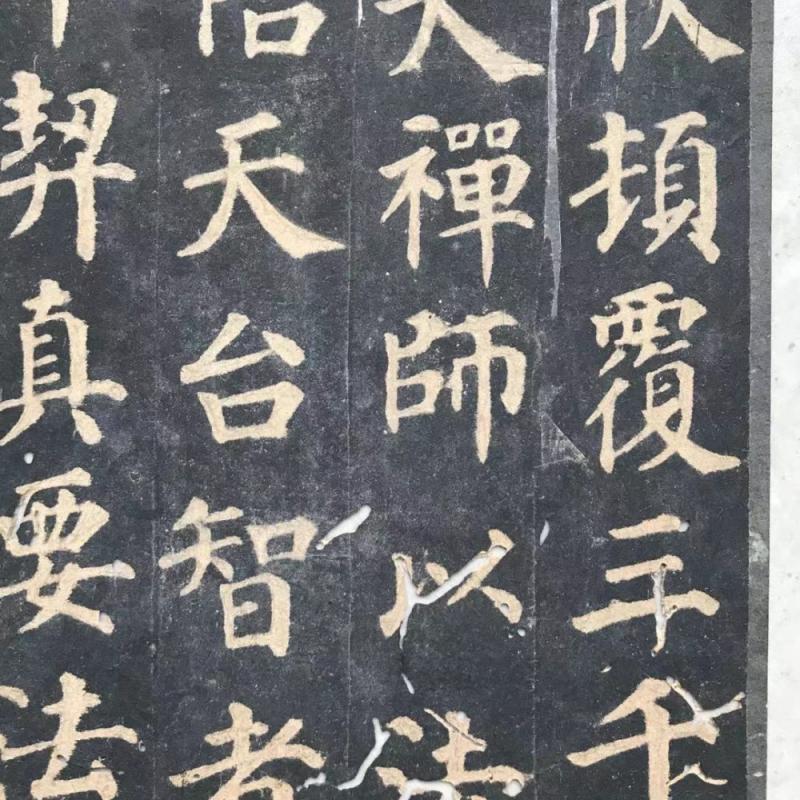 頓覆三千
大禪師以法
天台智者
契真要法